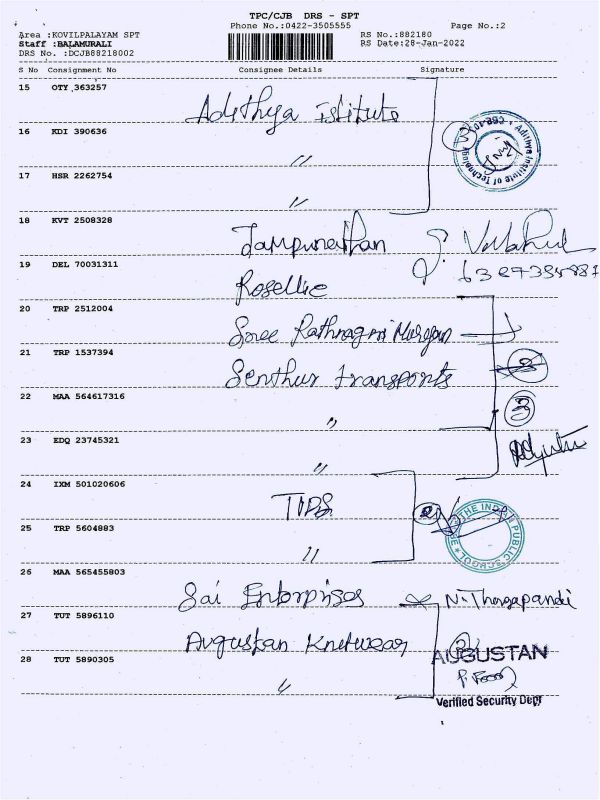 TPC/CJB DRS - SPT
Phone No.:0422-3505555 Page No.:2
Area :KOVILPALAYAM SPT RS No.:882180
Staff :BALAMURALI RS Date:28-Jan-2022
DRS No. :DCJB88218002
S No Consignment No Consignee Details Signature
15 OTY 363257 Adithya Istitute
16 KDI 390636 〃
3
Adithya Institute of Technology
17 HSR 2262754 〃
18 KVT 2508328
19 DEL 70031311 Rosellie
20 TRP 2512004 Sree Rathnagiri Murgan
21 TRP 1537394 Senthur transports
22 MAA 564617316 〃 3
23 EDQ 23745321 〃
24 IXM 501020606 TIPS
THE INDIAN PUBLIC SCHOOL
25 TRP 5604883 〃
26 MAA 565455803 Sai Enterprises N. Thangapandi
27 TUT 5896110 Augustan Knitwear
AUGUSTAN
28 TUT 5890305 〃
Verified Security Dept